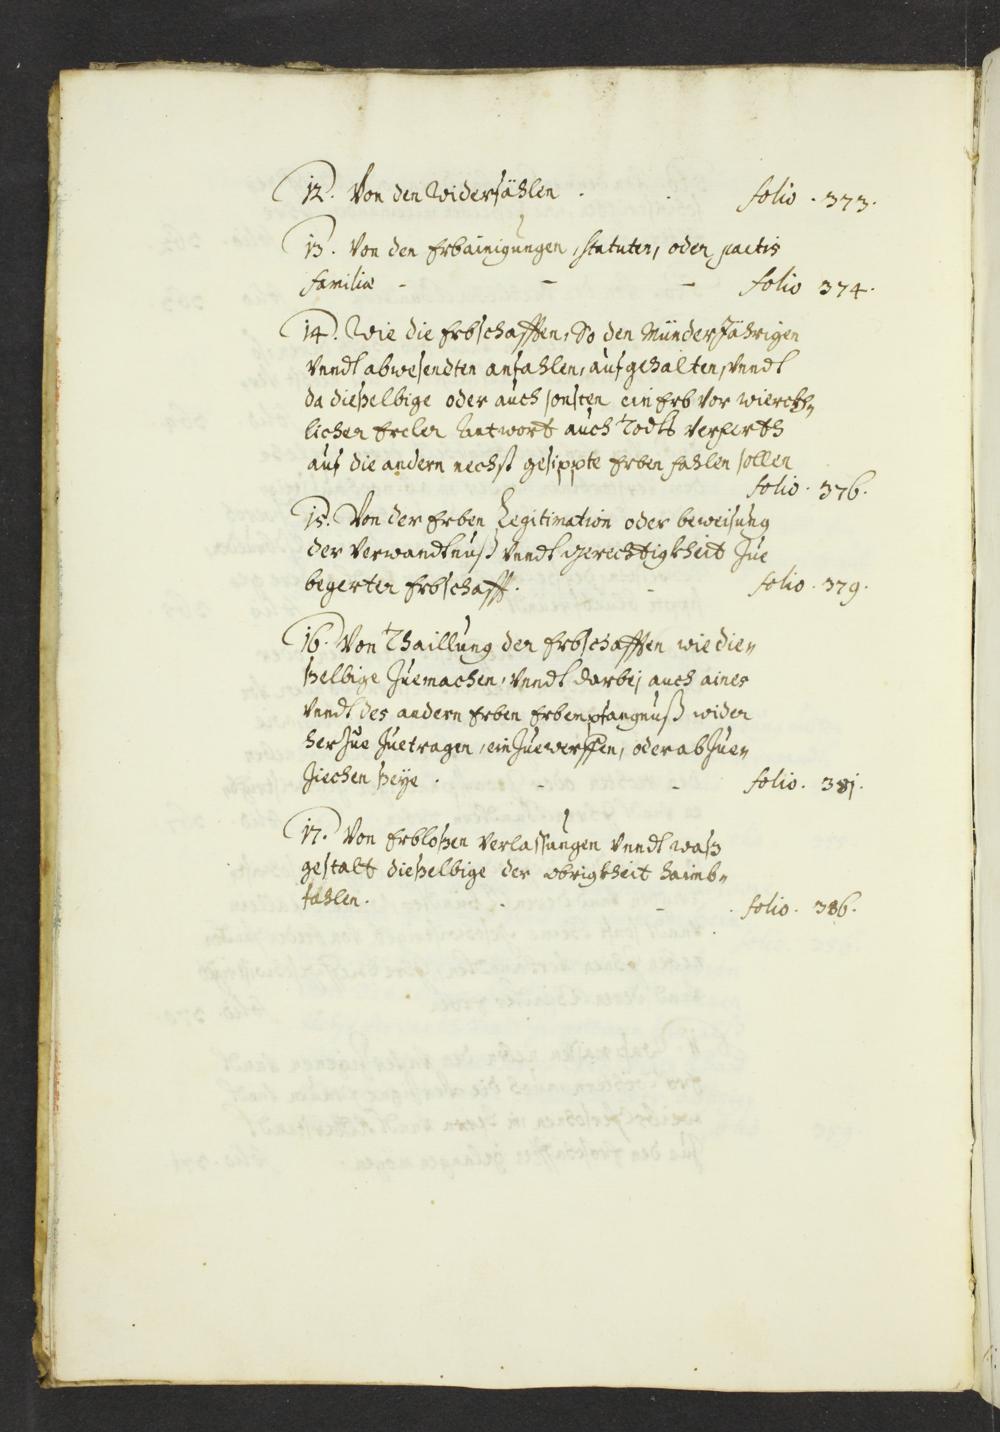 12. Von den Widerfählen . . folio . 373.
13. Von den Erbainigungen, statuten, oder pactis
familiæ - - - folio 374.
14. Wie die Erbschafften, So den Münder Jährigen
vnndt abwesendten anfahlen, aufgehalten, vnndt
da dießelbige oder auch sonsten ein Erb vor wierckh„
licher Antwort auch Todts verfierth
auf die andern nechst gesippte Erben fahlen sollen
folio . 376.
15. Von der Erben Legitimation oder beweisung
der Verwandtnuß vnndt gerechtigkheit Zue
begerter Erbschafft. - folio . 379.
16. Von Thaillung der Erbschafften wie die„
ßelbige Zuemachen, vnndt darbej auch aines
vnndt des andern Erben Erbempfangnuß wider
herZue Zuetragen, ein Zuewerffen, oder abZue„
Ziechen seye . - - folio . 381.
17. Von Erbloßen Verlassungen vnndt waß
gestalt dießelbige der obrigkheit haimb„
fahlen. . - . folio . 386.